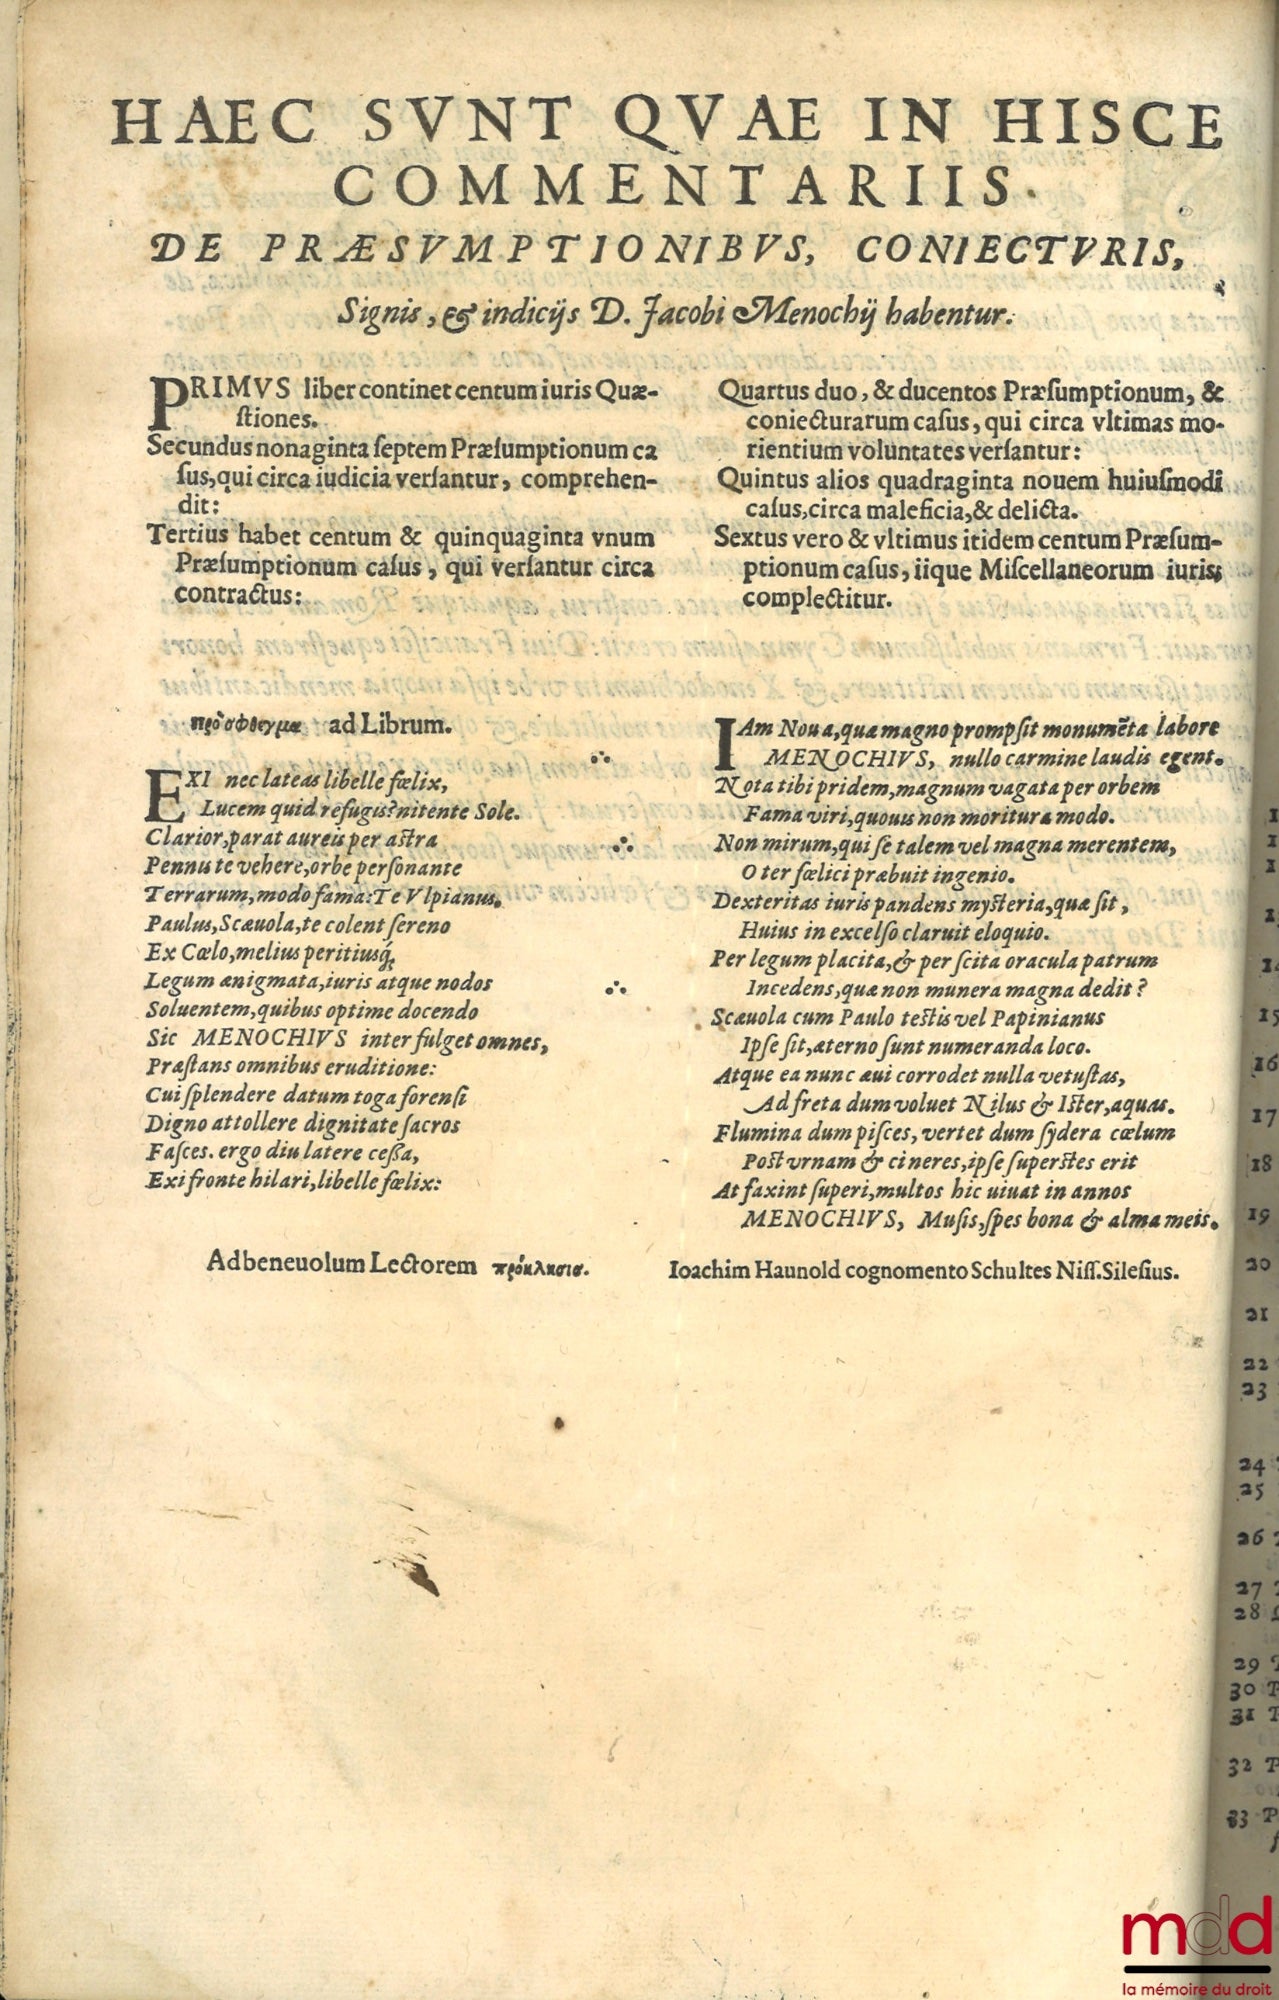 HAEC SVNT QVAE IN HISCE
COMMENTARIIS
DE PRÆSVMPTIONIBVS, CONIECTVRIS,
Signis, & indicijs D. Jacobi Menochij habentur.
PRIMVS liber continet centum iuris Quæ-
ſtiones.
Secundus nonaginta ſeptem Præſumptionum ca
ſus, qui circa iudicia verſantur, comprehen-
dit:
Tertius habet centum & quinquaginta vnum
Præſumptionum caſus, qui verſantur circa
contractus:
Quartus duo, & ducentos Præſumptionum, &
coniecturarum caſus, qui circa vltimas mo-
rientium voluntates verſantur:
Quintus alios quadraginta nouem huiuſmodi
caſus, circa maleficia, & delicta.
Sextus vero & vltimus itidem centum Præſum-
ptionum caſus, iique Miſcellaneorum iuris
complectitur.
πρόσφθεγμα ad Librum.
EXI nec lateas libelle fœlix,
Lucem quid refugis? nitente Sole.
Clarior, parat aureis per aſtra
Pennis te vehere, orbe perſonante
Terrarum, modo fama: Te Vlpianus.
Paulus, Scæuola, te colent ſereno
Ex Cœlo, melius peritiusq́;
Legum ænigmata, iuris atque nodos
Soluentem, quibus optime docendo
Sic MENOCHIVS inter fulget omnes,
Præſtans omnibus eruditione:
Cui ſplendere datum toga forenſi
Digno attollere dignitate ſacros
Faſces. ergo diu latere ceſſa,
Exi fronte hilari, libelle fœlix:
Ad beneuolum Lectorem πρόκλησις.
IAm Noua, quæ magno prompſit monumēta labore
MENOCHIVS, nullo carmine laudis egent.
Nota tibi pridem, magnum vagata per orbem
Fama viri, quouis non moritura modo.
Non mirum, qui ſe talem vel magna merentem,
O ter fœlici præbuit ingenio.
Dexteritas iuris pandens myſteria, quæ ſit,
Huius in excelſo claruit eloquio.
Per legum placita, & per ſcita oracula patrum
Incedens, quæ non munera magna dedit?
Scæuola cum Paulo teſtis vel Papinianus
Ipſe ſit, æterno ſunt numeranda loco.
Atque ea nunc æui corrodet nulla vetuſtas,
Ad freta dum voluet Nilus & Iſter, aquas.
Flumina dum piſces, vertet dum ſydera cœlum
Poſt vrnam & cineres, ipſe ſuperſtes erit
At faxint ſuperi, multos hic uiuat in annos
MENOCHIVS, Muſis, ſpes bona & alma meis.
Ioachim Haunold cognomento Schultes Niſſ. Sileſius.
15
16
17
18
19
20
21
22
23
24
25
26
27
28
29
30
31
32
33 P
mdd
la mémoire du droit